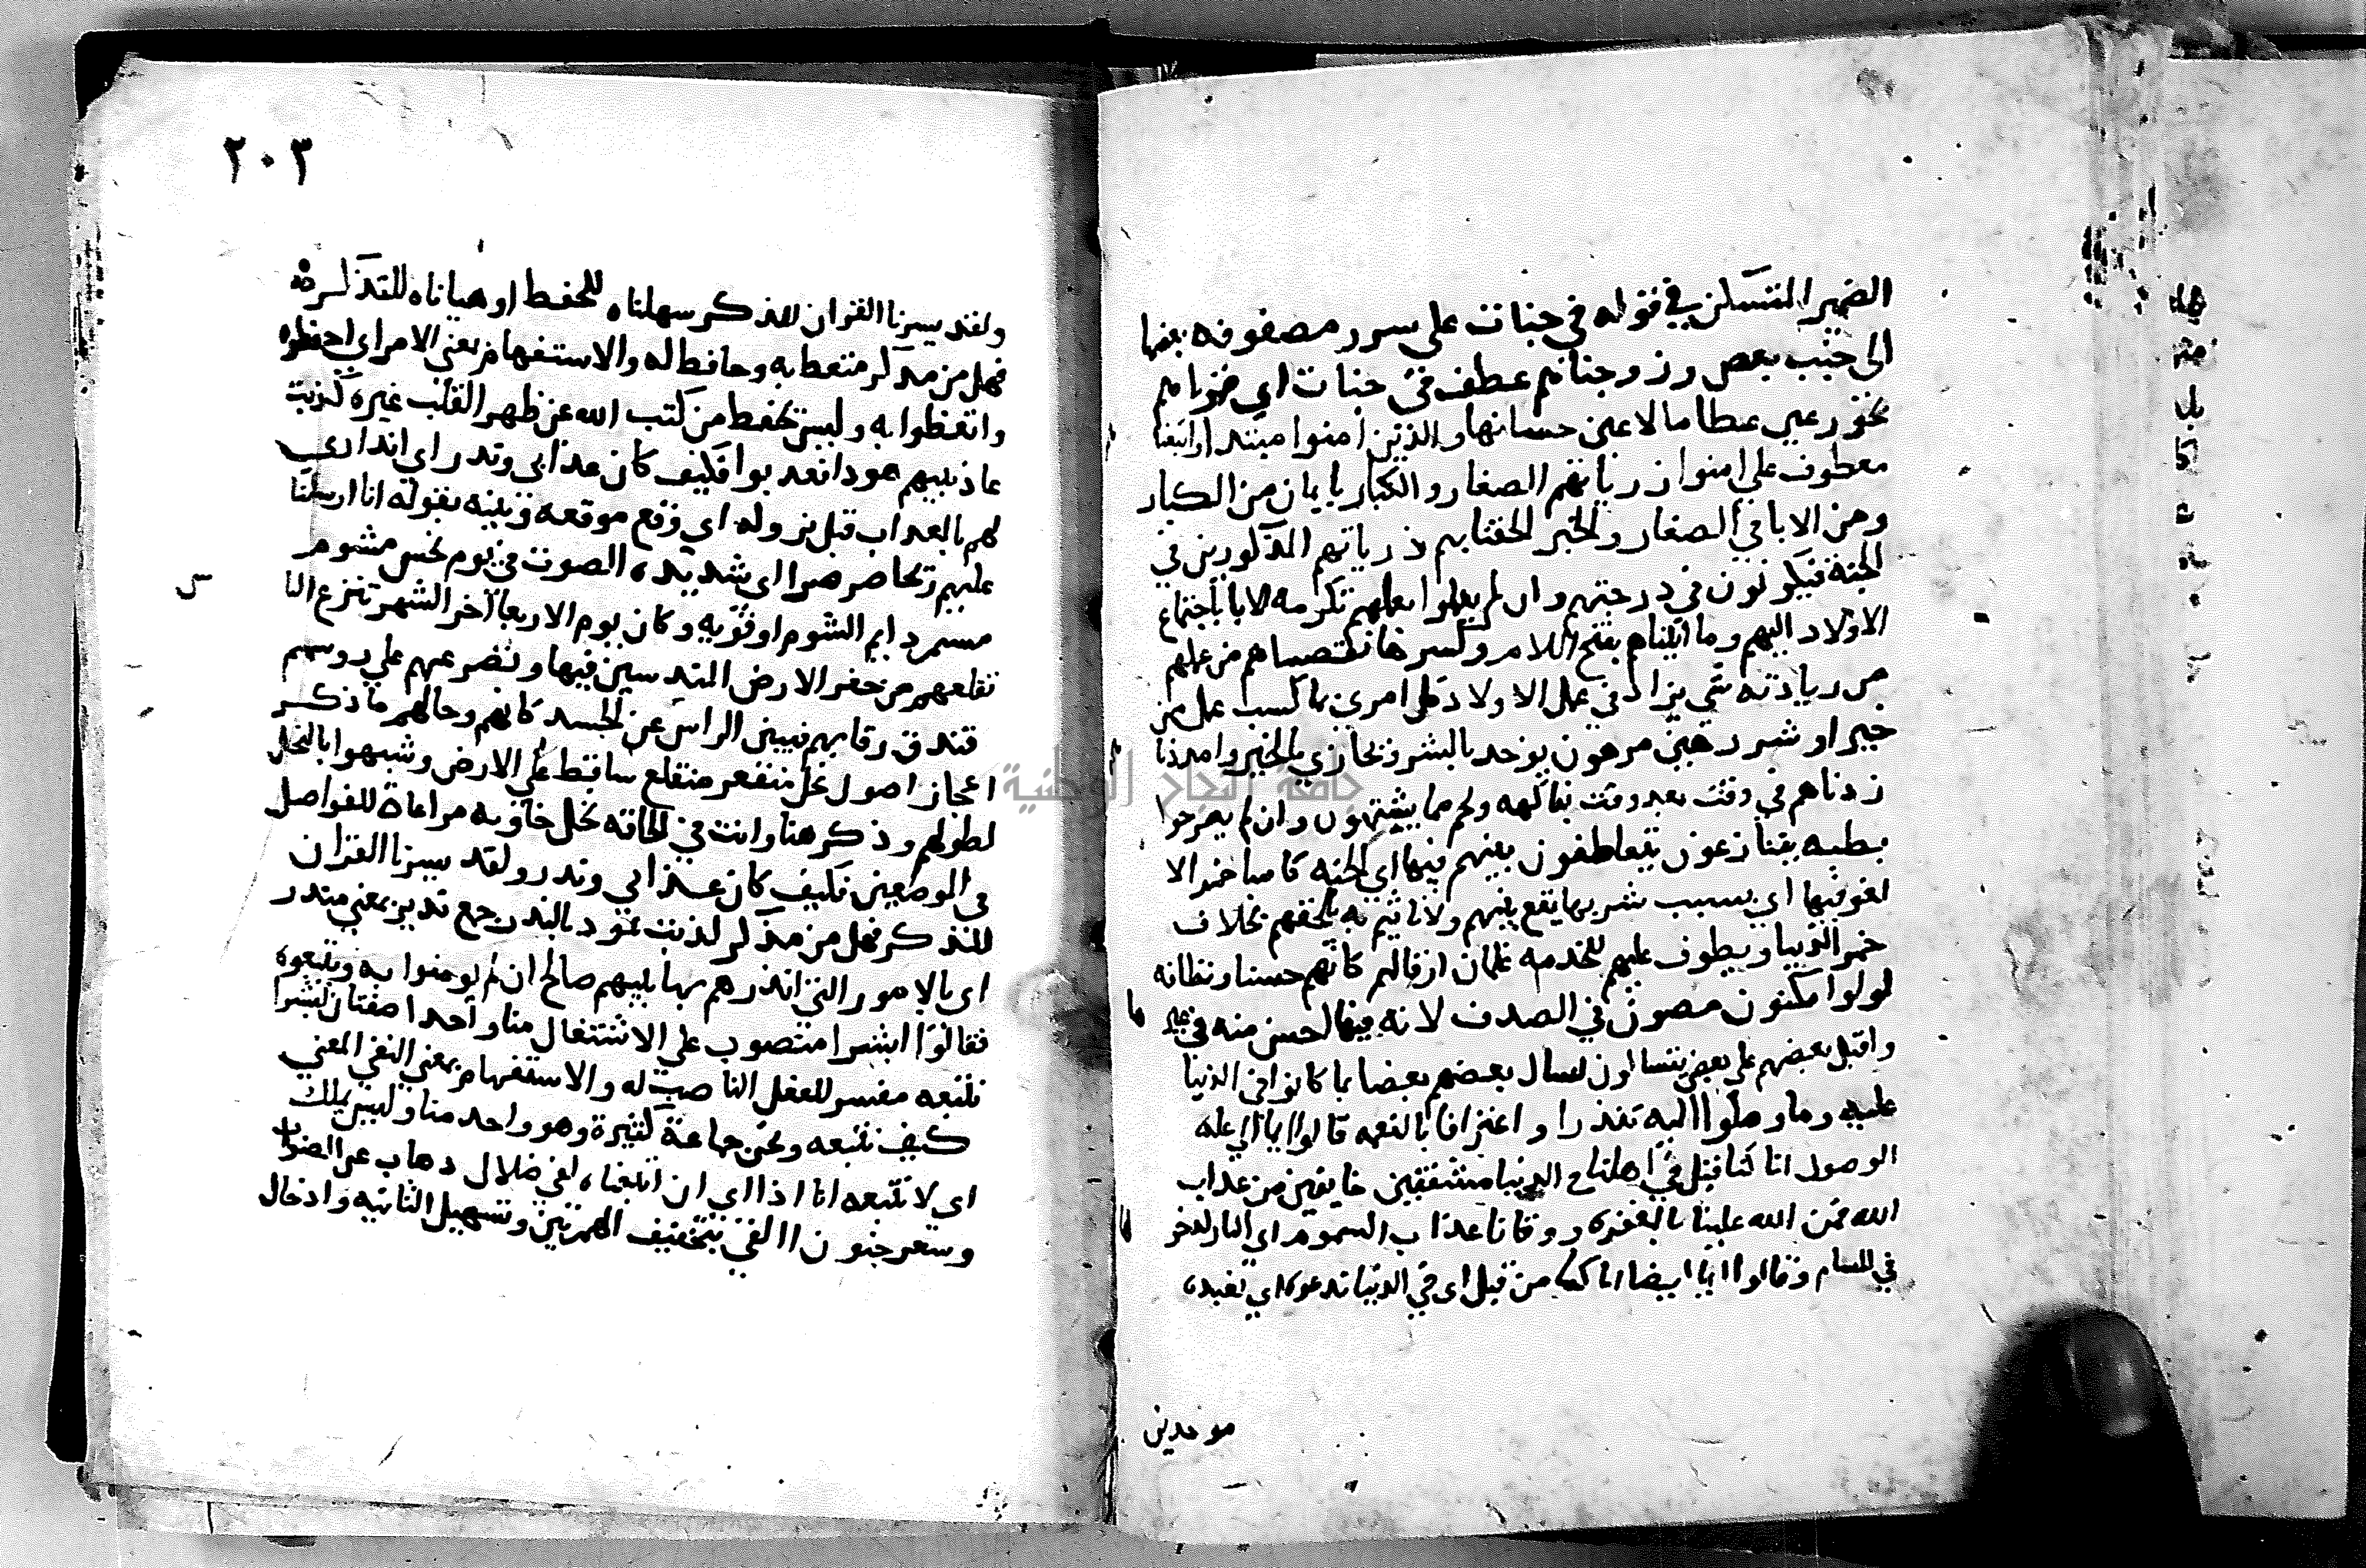 الضمير المستكن في قوله في جنات على سرر مصفوفه بعضها
الى جنب بعض وزوجناهم عطف في جنات اي قرناهم
بحور عين عظاما لاعين حسانها والذين امنوا مبتدا واتبعنا
معطوف على امنوا ذرياتهم الصغار والكبار بايمان من الكبار
ومن الابا في الصغار والخبر الحقنا بهم ذرياتهم المذكورين في
الجنة فيكونون في درجتهم وان لم يعملوا بعملهم تكرمه للابا باجتماع
الاولاد اليهم وما التناهم بفتح اللام وكسرها نقصناهم من عملهم
من زيادته شي يزاد في عمل الاولاد كل امري بما كسب عمل من
خير او شر رهين مرهون يوخذ بالشر ويجازي بالخير وامددنا
زدناهم في وقت بعد وقت بفاكهه ولحم مما يشتهون وان لم يصرحوا
بطلبه يتنازعون يتعاطفون بينهم فيها اي الجنه كاسا خمرا لا
لغو فيها اي بسبب شربها يقع بينهم ولا تاثيم به يلحقهم بخلاف
خمر الدنيا ويطوف عليهم للخدمه غلمان ارقا لهم كانهم حسنا ونظافه
لولوا مكنون مصون في الصدف لانه فيها احسن منه في غيرها
واقبل بعضهم على بعض يتساالون يسال بعضهم بعضا بما كانوا في الدنيا
عليه وما وصلوا اليه تلذذا واعترافا بالنعمه قالوا ايما الى علة
الوصول انا كنا قبل في اهلنا في الدنيا مشفقين خايفين من عذاب
الله فمن الله علينا بالمغفره ووقانا عذاب السموم اي النار لدخولها
في المسام وقالوا ايما ايضا انا كنا من قبل اي في الدنيا ندعوه اي نعبده
موحدين
٢٠٣
ولقد يسرنا القران للذكر سهلناه للحفظ او هياناه للتذكرة
فهل من مدكر متعظ به وحافظ له والاستفهام بمعني الامر اي احفظوه
واتعظوا به وليس يحفظ من كتب الله عن ظهر القلب غيره كذبت
عاد نبيهم هودا فعذبوا فكيف كان عذابي ونذر اي انذاري
لهم بالعذاب قبل نزوله اي وقع موقعه وبينه بقوله انا ارسلنا
عليهم ريحا صرصرا اى شديده الصوت في يوم نحس مشوم
مستمر دايم الشوم او قويه وكان يوم الاربعا آخر الشهر تنزع النا
تقلعهم من حفر الارض المندسين فيها وتصرعهم علي روسهم
فتدق رقابهم فيبين الراس عن الجسد كانهم وحالهم ما ذكر
اعجاز اصول نخل منقعر منقلع ساقط علي الارض وشبهوا بالنخل
لطولهم وذكر هنا وانت في الحاقه نخل خاويه مراعاة للفواصل
في الموضعين فكيف كان عذابي ونذر ولقد يسرنا القران
للذكر فهل من مدكر كذبت ثمود بالنذر جمع نذير بمعني منذر
اي بالامور التي انذرهم بها نبيهم صالح ان لم يومنوا به ويتبعوه
فقالوا ابشرا منصوب علي الاشتغال منا واحدا صفتان لبشرا
نتبعه مفسر للفعل الناصب له والاستفهام بمعني النفي المعني
كيف نتبعه ونحن جماعة كثيرة وهو واحد منا وليس بملك
اي لا نتبعه انا اذا اي ان اتبعناه لفي ضلال ذهاب عن الصواب
وسعر جنون االقي بتحقيق الهمزتين وتسهيل الثانيه وادخال
جامعة النجاح الوطنية